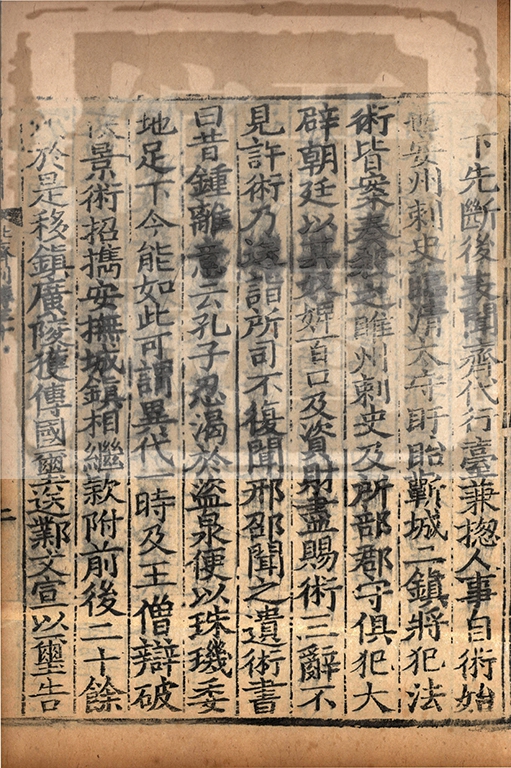 下先斷後表聞齊代行臺兼揔人事自術始
安州刺史臨清太守盱眙蘄城二鎮將犯法
術皆案奏殺之睢州刺史及所部郡守俱犯大
辟朝廷以其奴婢百口及資財盡賜術三辭不
見許術乃送詣所司不復聞邢邵聞之遺術書
曰昔鍾離意云孔子忍渴於盜泉便以珠璣委
地足下今能如此可謂異代一時及王僧辯破
侯景術招攜安撫城鎮相繼款附前後二十餘
於是移鎮廣陵獲傳國璽送鄴文宣以璽告
二